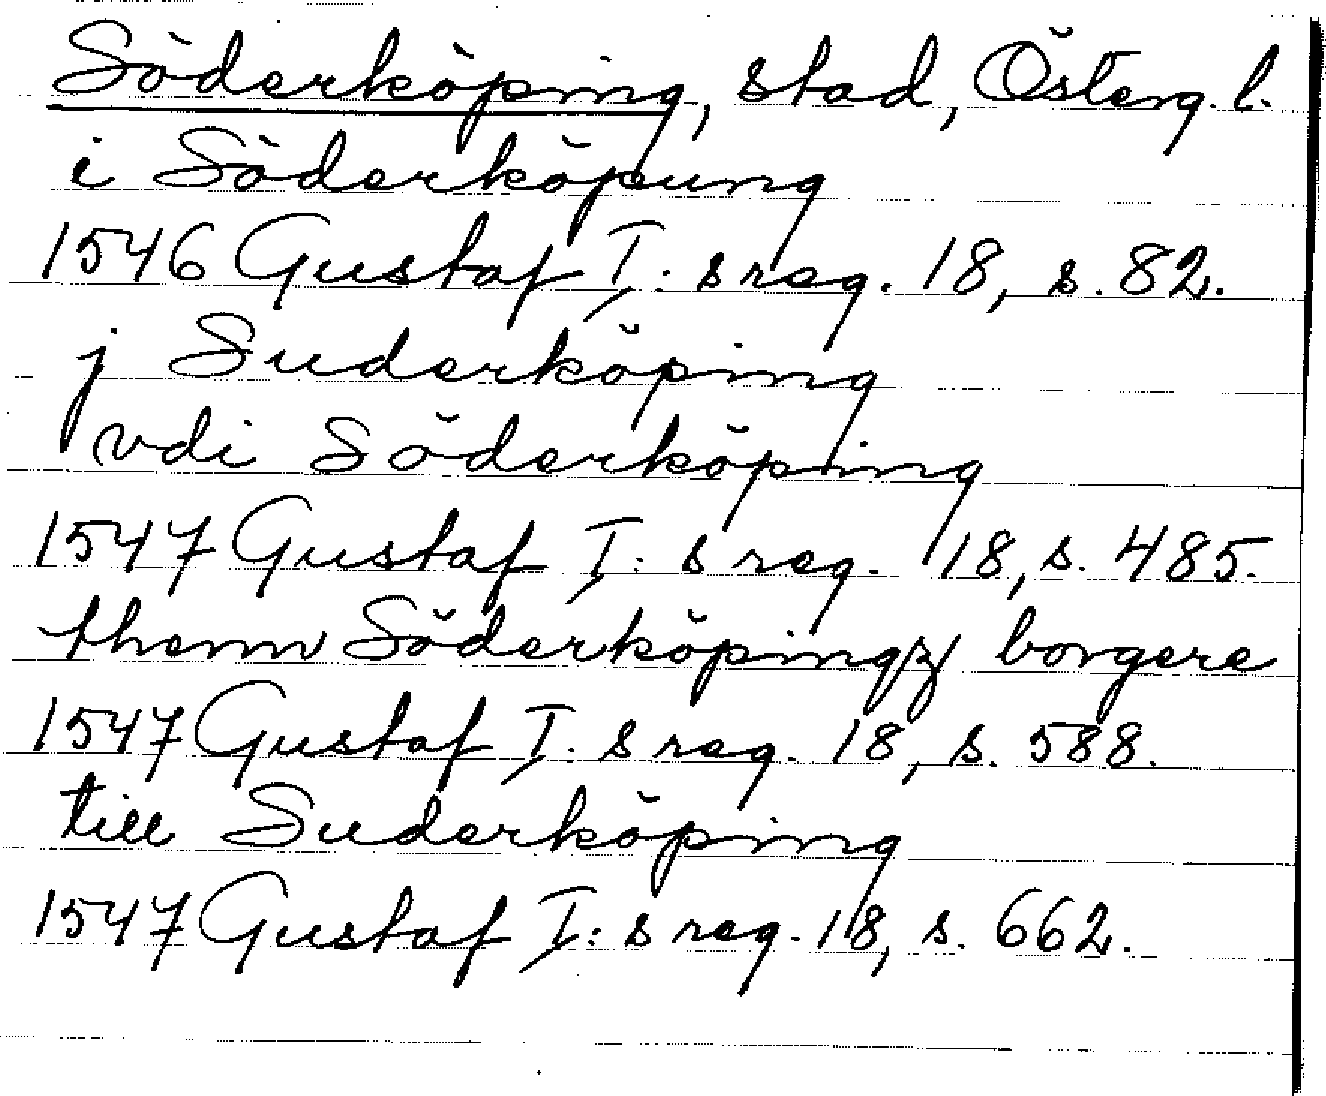 Söderköping, stad, Österg. l.
i Söderköpung
1546 Gustaf I: s reg. 18, s. 82.
j Suderköping
vdi Söderköping
1547 Gustaf I: s reg. 18, s. 485.
thenn Söderköpingz borgere
1547 Gustaf I: s reg. 18, s. 588.
till Suderköping
1547 Gustaf I: s reg. 18, s. 662.